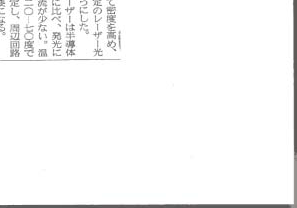 て密度を高め、
定のレーザー光
らにした。
ーザーは半導体
に比べ、発光に
流が少ない。温
二〇―七〇度で
定し、周辺回路
要になる。